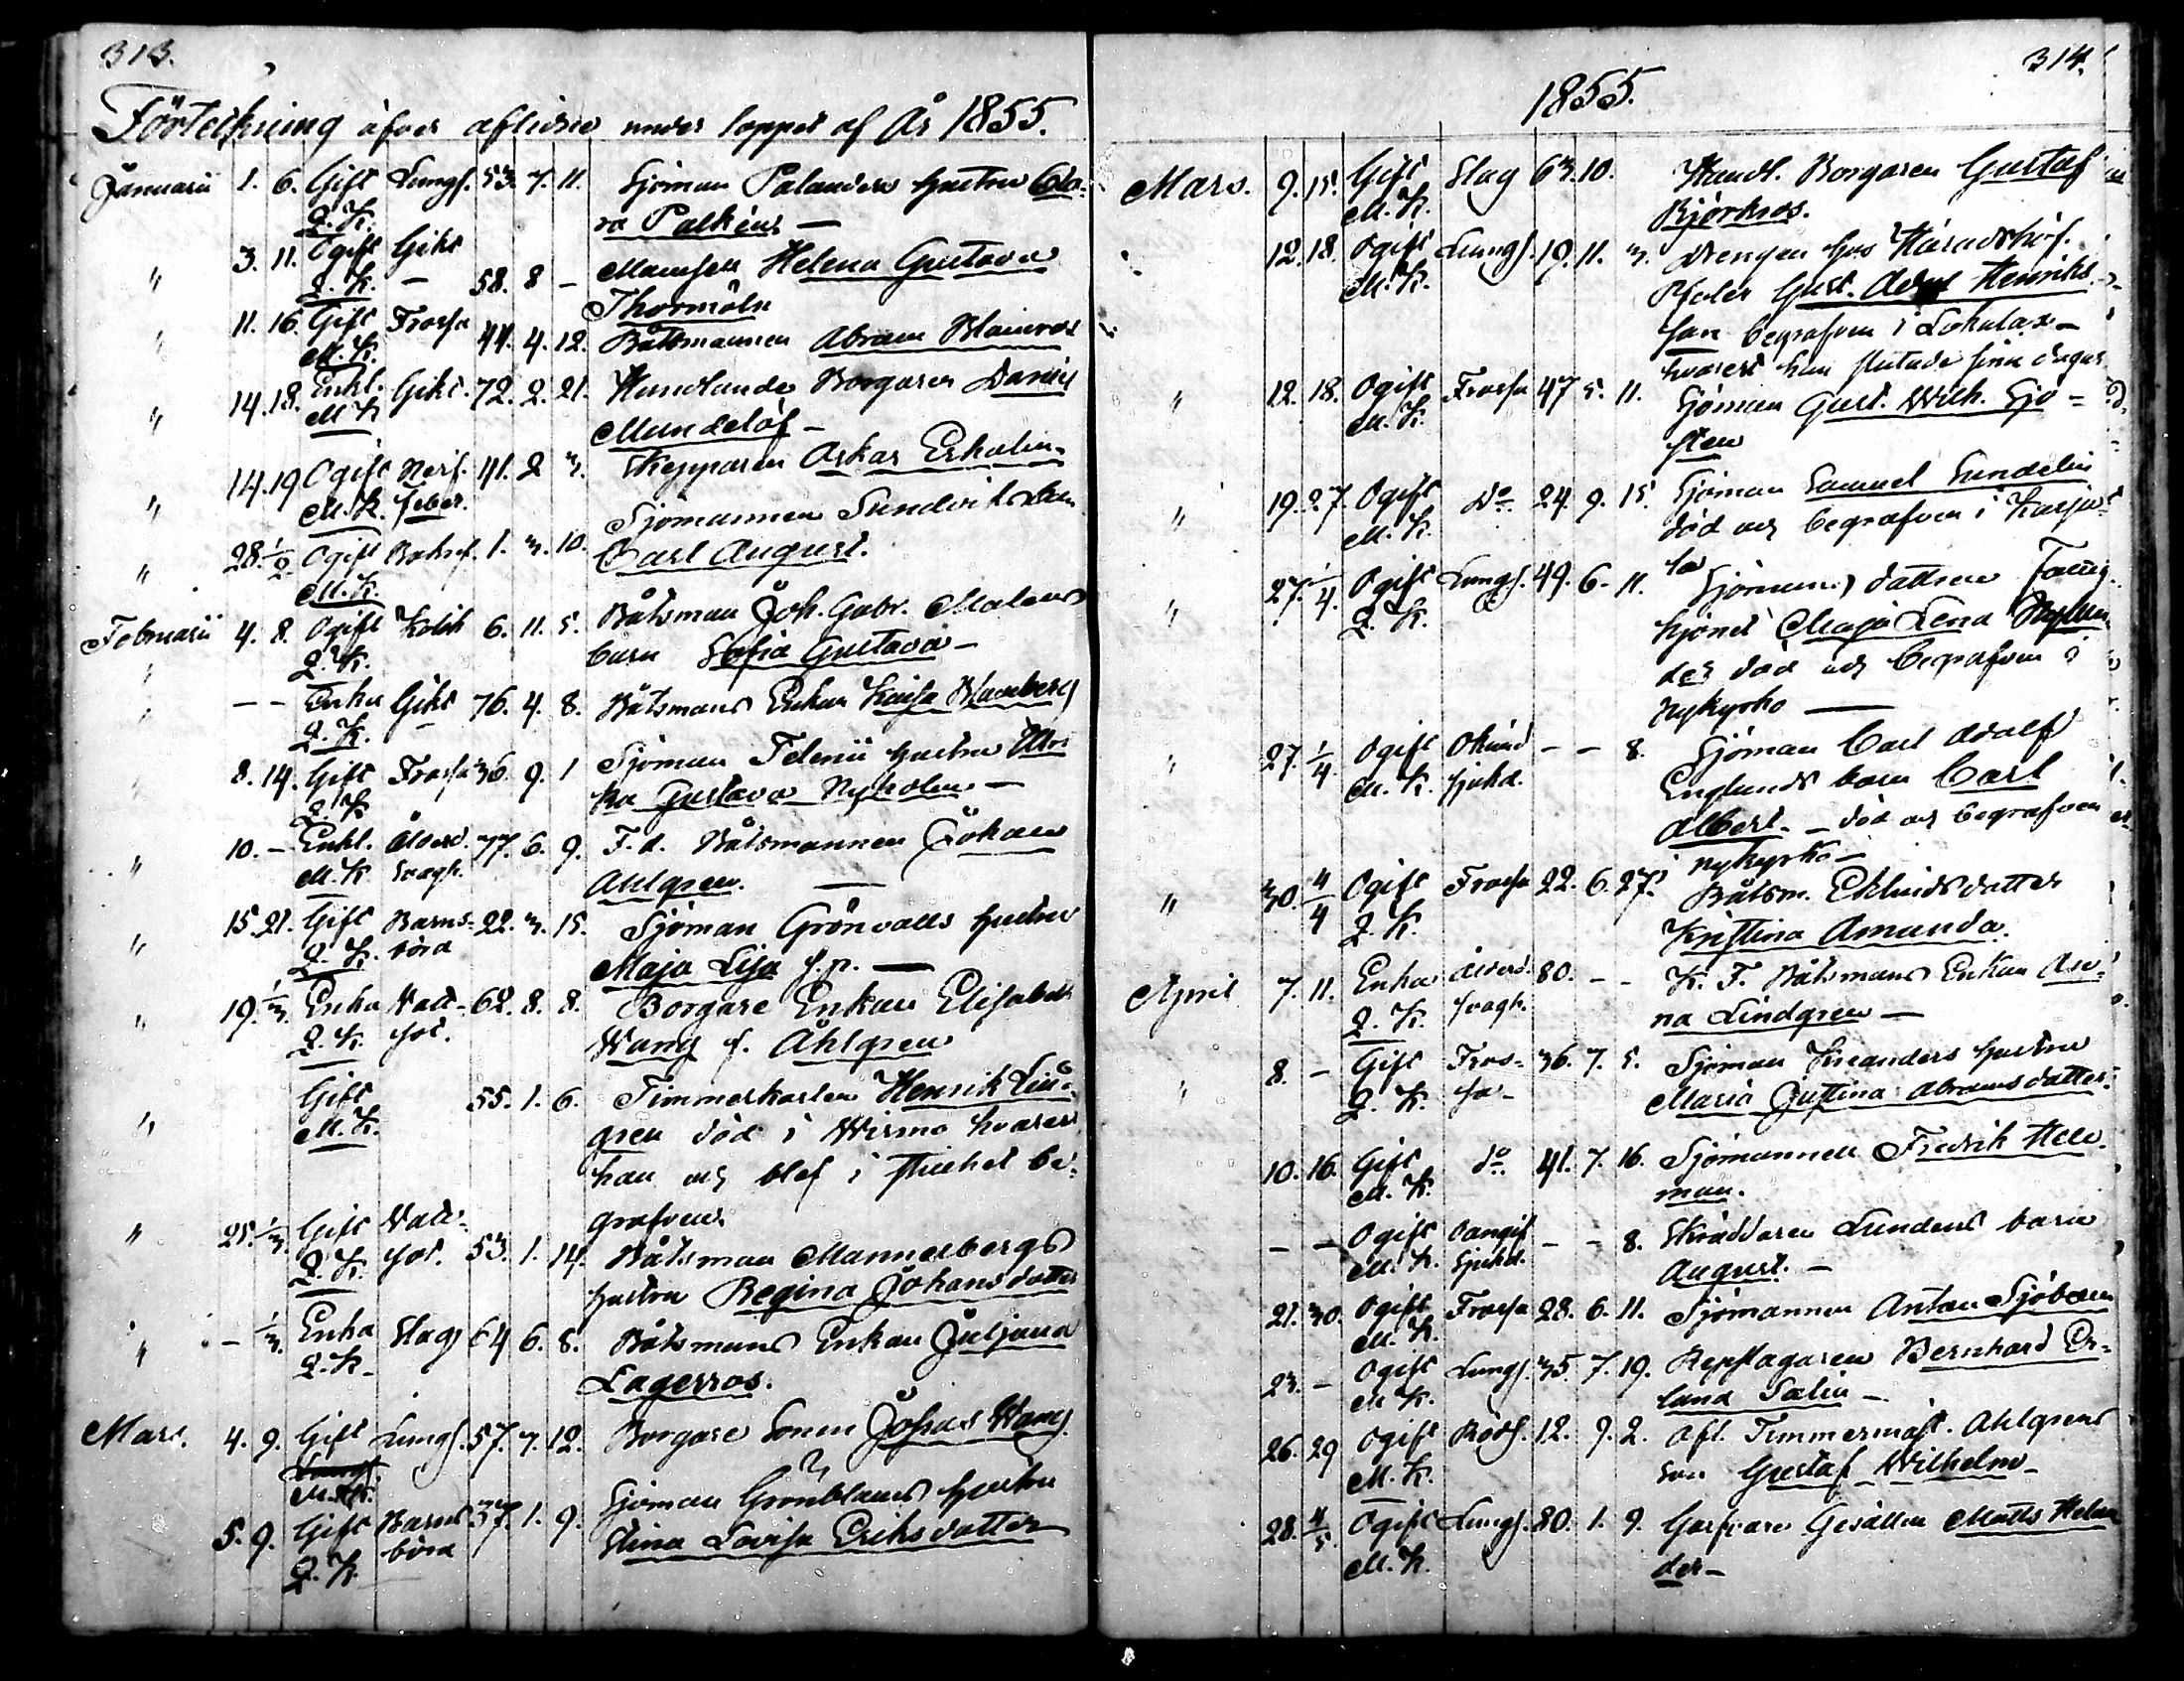 313.
Förteckning öfver aflidne under loppet af År 1855.
Januarii 1. 6. Gift Lungs. 53. 7. 11. Sjöman Palanders hustru Cla-
Q. K. ra Palkéns —
" 3. 11. Ogift Gikt 58. 8 - Mamsell Helena Gustava
Q. K. — Thormöln
" 11. 16. Gift Frossa 44. 4. 12. Båtsmannen Abram Blomros
M. K.
" 14. 18. Enkl. Gikt. 72. 2. 21. Handlande Borgaren Daniel
M K Mundelöf —
" 14. 19 Ogift Nerf. 41. 2 3. Skepparen Oskar Erholm
M. K. feber.
" 28. 1/2. Ogift 1. 3. 10. Sjömannen Sundvik
M. K. Carl August.
Februarii 4. 8. Ogift Kolik 6. 11. 5. Båtsman Joh. Gabr.
Q. K. barn Sofia Gustava —
" - - Enka Gikt 76. 4. 8. Båtsmans Enkan Kaisa Blomberg
Q. K.
" 8. 14. Gift Frossa 36. 9. 1 Sjöman hustru Ulri
Q. K ka Gustava Nyholm —
" 10. - Enkl. Ålderd. 77. 6. 9. F. d. Båtsmannen Johan
M. K svagh. Ahlgren. —
" 15. 21. Gift Barns- 22. 3. 15. Sjöman Grönvalls hustru
Q. K. börd Maja Lisa —
" 19. 1/3. EnkaВатt- 62. 8. 8. Borgare Enkan Elisabeth
Q. K. sot. Wang f. Åhlgren
" Gift 55. 1. 6. Timmerkarlen Henrik Lin-
M. K. gren död i Wirmo hvarest
han och blef i stillhet be-
grafven.
" 25. 1/3. Gift Vatt- 53. 1. 14. Båtsman Mannerbergs
Q. K. sot. hustru Regina Johansdotter
" - 1/3. Enka Slag 64 6. 8. Båtsmans Enkan Juljana
Q. K. Lagerros.
Mars. 4. 9. Gift Lungs. 57. 7. 12. Borgare Sonen Josias Wang.
M. K.
5. 9. Gift Barns 37. 1. 9. Sjöman Grönbloms hustru
Q. K. börd Stina Lovisa Eriksdotter
314.
1855.
Mars. 9. 15. Gift Slag 63. 10. Handl. Borgaren Gustaf
M. K. Björkros.
12. 18. Ogift Lungs. 19. 11. 3. Drengen hos Häradshöf.
M. K. Pfaler Gust. Adolf Henriks-
son begrafven i Lokalax —
hvarest han slutade sina dagar
" 12. 18. Ogift Frossa 47 5. 11. Sjöman Gust. Wilh. Sjö-
M. K. sten
" 19. 27. Ogift Do 24. 9. 15. Sjöman Samuel Sundelin
M. K. död och begrafven i Karju-
la
" 27. 1/4. Ogift Lungs. 49. 6. 11. Sjömans dottren
Q. K. hjonet Maja Lena Nylan
der död och begrafven i
Nykyrko —
" 27. 1/4. Ogift Okänd - - 8. Sjöman Carl Adolf
M. K. sjukd. Englunds barn Carl
Albert. — död och begrafven
i Nykyrko —
" 30. 4/4 Ogift Frossa 22. 6. 27. Båtsm. Eklunds dotter
Q. K. Kristina Amanda.
April 7. 11. Enka Ålderd. 80. - - K. F. Båtsmans Enkan
Q. K. svagh. na Lindgren —
" 8. - Gift Fros- 36. 7. 5. Sjöman hustru
Q. K. sa — Maria Justina Abramsdotter.
10. 16. Gift do. 41. 7. 16. Sjömannen Fredrik
M. K. man.
- - Ogift Oangif - - 8. Skräddaren Lundens barn
M. K. Sjukd. August. —
21. 30. Ogift Frossa 28. 6. 11. Sjömannen Anton Sjöblom
M. K.
23. - Ogift Lungs. 35. 7. 19. Repslagaren Bernhard Er-
M K. land Salin —
26. 29 Ogift Röds. 12. 9. 2. Afl. Timmermäst. Ahlgrens
M. K. son Gustaf Wilhelm —
28. 4/5. Ogift Lungs. 80. 1. 9. Garfvare Gesällen Matts Helan
M. K. der —